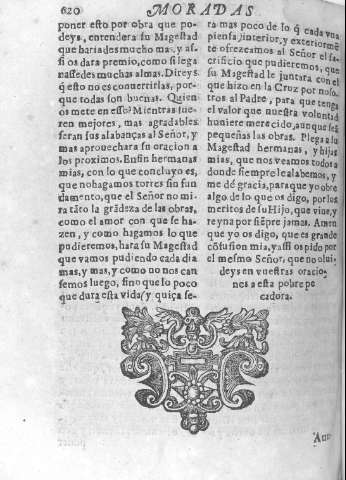 620
MORADAS
poner esto por obra que po-
deys, entendera su Magestad
que hariades mucho mas, y as-
si os dara premio, como si lega
nassedes muchas almas. Direys
q̃ esto no es conuertirlas, por-
que todas son buenas. Quien
os mete en esso? Mientras fue-
ren mejores, mas agradables
seran sus alabanças al Señor, y
mas aprouechara su oracion a
los proximos. En fin hermanas
mias, con lo que concluyo es,
que no hagamos torres sin fun
damento, que el Señor no mi
ra tãto la grãdeza de las obras,
como el amor con que se ha-
zen, y como hagamos lo que
pudieremos, hara su Magestad
que vamos pudiendo cada dia
mas, y mas, y como no nos can
semos luego, sino que lo poco
que dura esta vida (y quiça se-
ra mas poco de lo q̃ cada vna
piensa) interior, y exteriormẽ
te ofrezcamos al Señor el sa-
crificio que pudieremos, que
su Magestad le juntara con el
que hizo en la Cruz por noso-
tros al Padre, para que tenga
el valor que nuestra voluntad
huuiere merecido, aunque seã
pequeñas las obras. Plega a su
Magestad hermanas, y hijas
mias, que nos veamos todos a
donde siempre le alabemos, y
me dé gracia, para que yo obre
algo de lo que os digo, por los
meritos de su Hijo, que viue, y
reyna por siẽpre jamas. Amen
que yo os digo, que es grande
cõfusion mia, y assi os pido por
el mesmo Señor, que no olui-
deys en vuestras oracio-
nes a esta pobre pe
cadora.